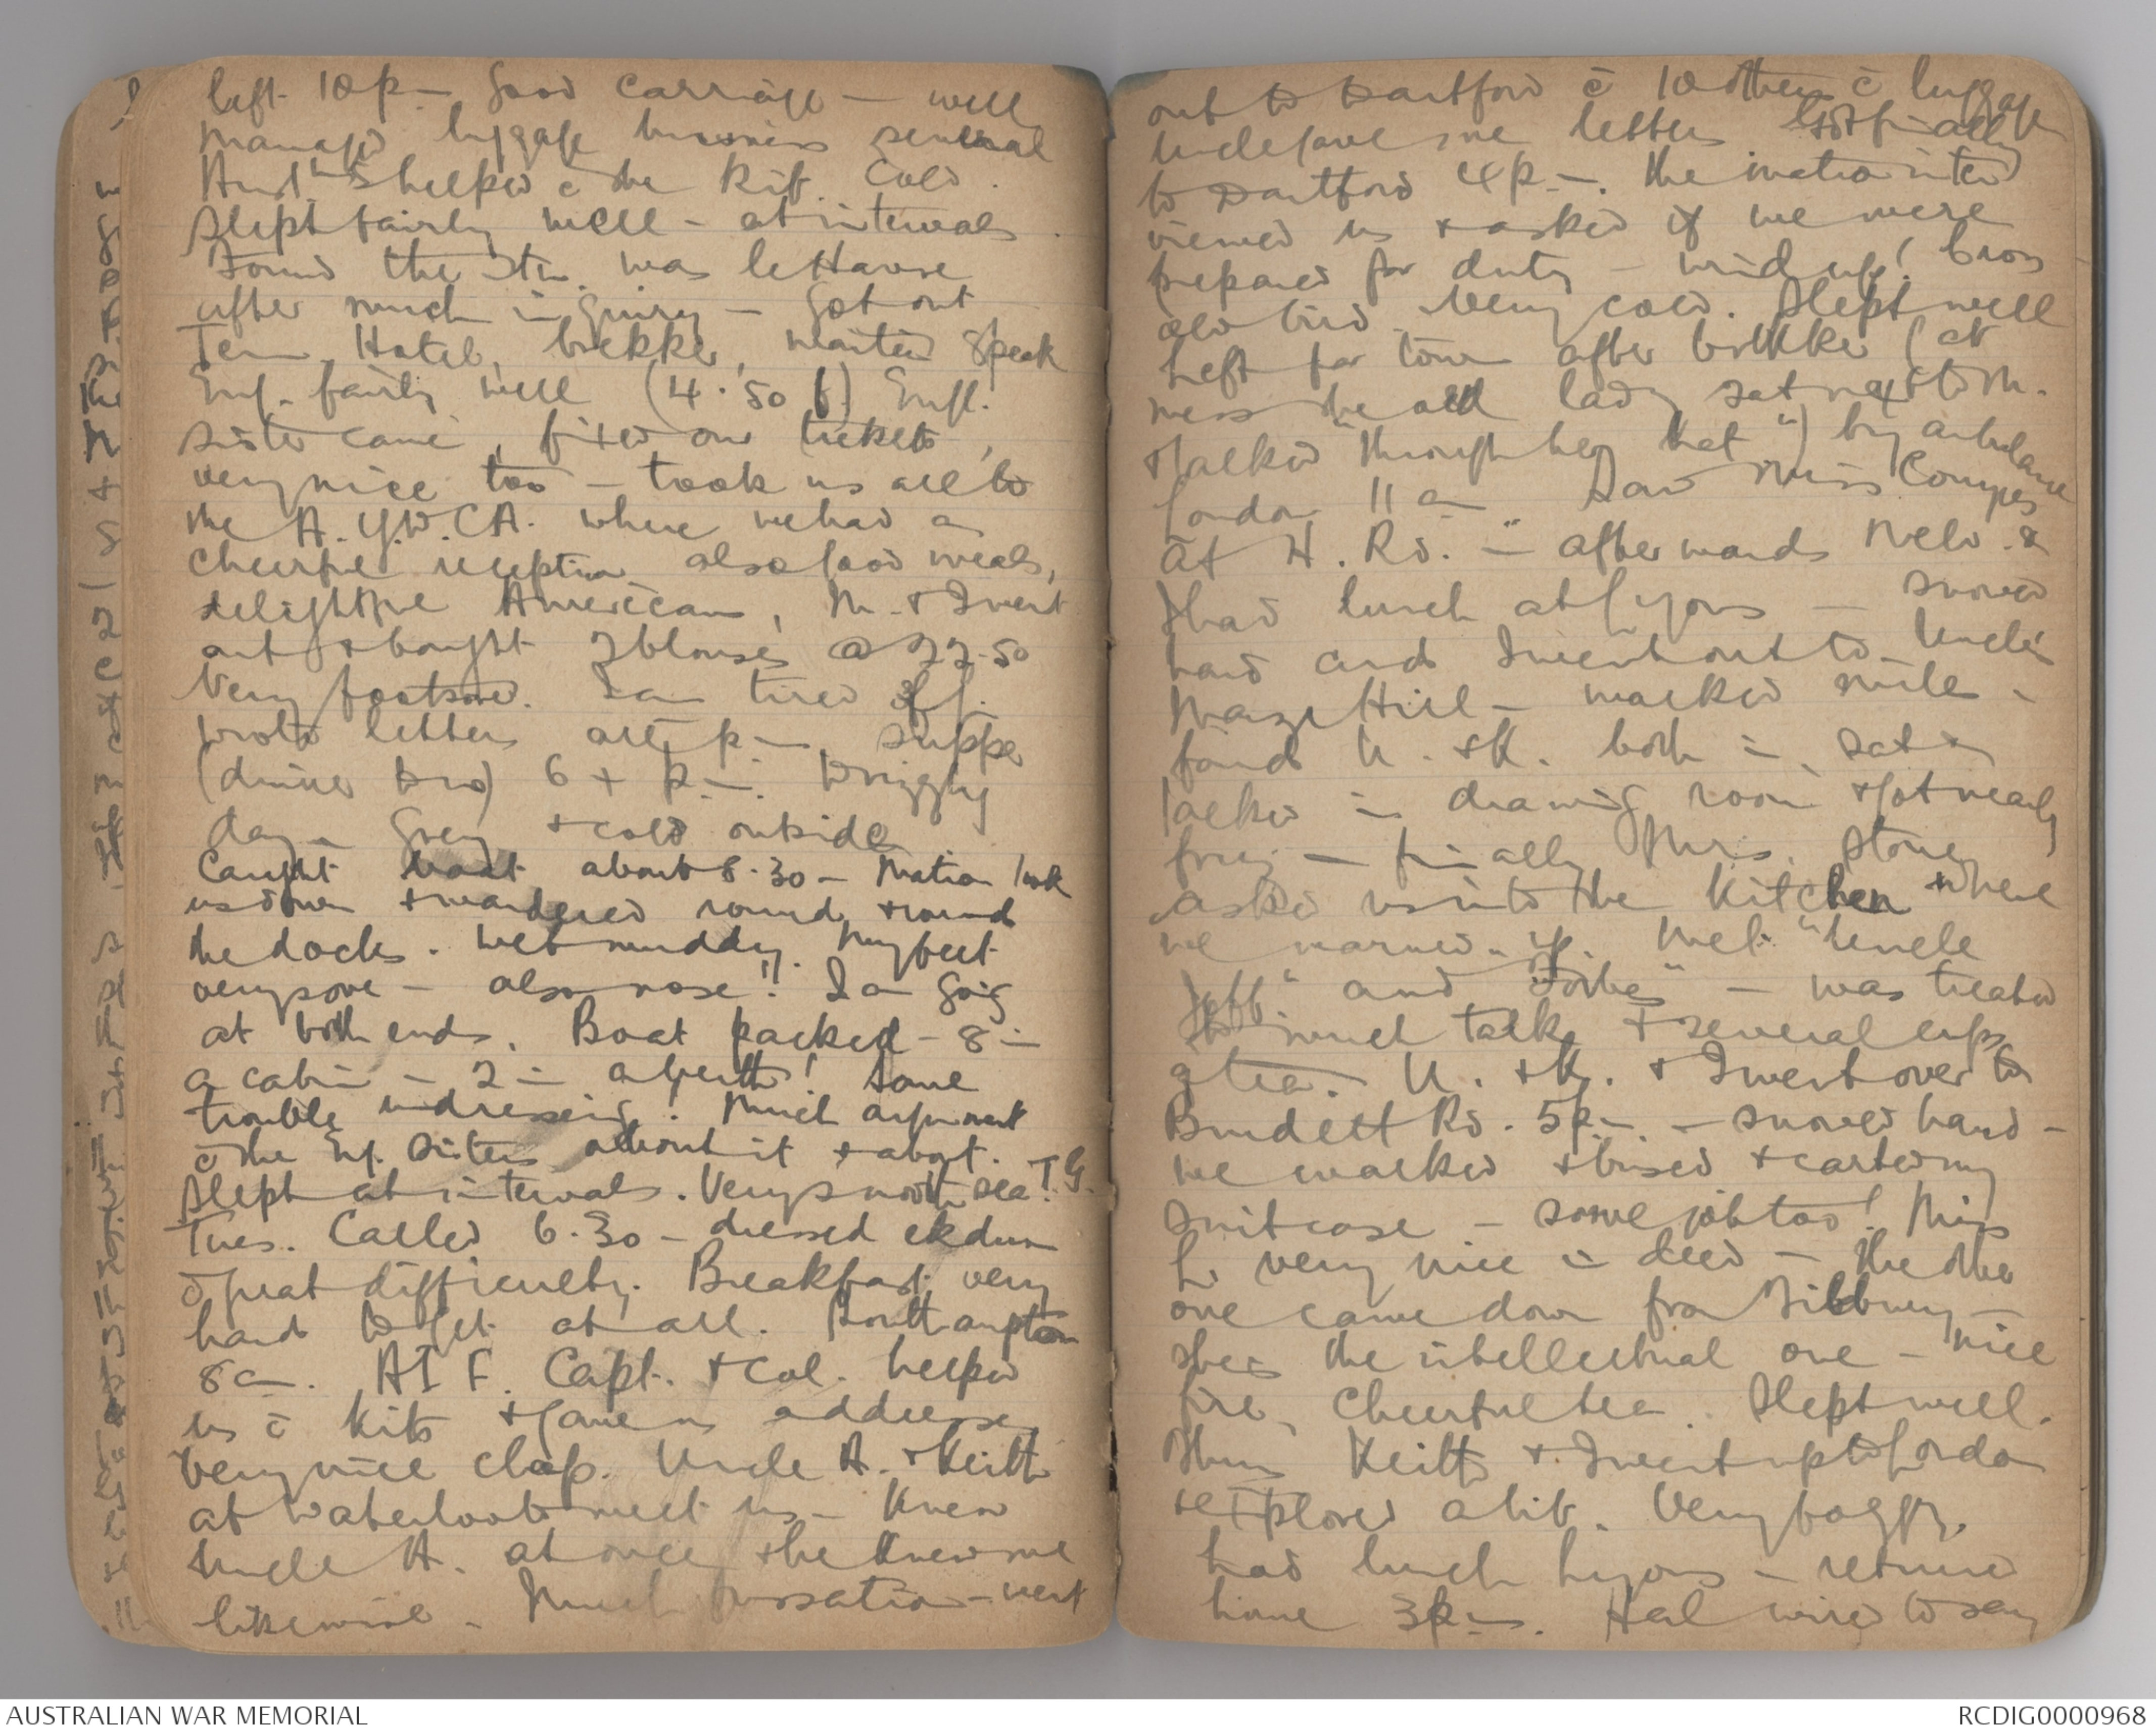 left 10 pm good carriage - well
managed luggage business several
Aust<sup>ns</sup> helped c̄ the Kit. Cold.
Slept fairly well - at intervals
Found the Stn. was le Havre
after much inquiry - Got out
Term. Hotel, brekker, waiter speak
Eng. fairly well (4.50 f) Engl.
Sister came, fixed our tickets,
very nice too - took us all to
the A.Y.W.C.A. where we had a
cheerful reception also good meals,
delightful Americans, M. & I went
out & bought 2 blouses @ 22.50
Very footsore. I am tired
wrote letters all pm. Supper
(dinner too) 6 + pm. Drizzly
day - Grey & cold outside
Caught boat about 8.30 - Matron took
us down & wandered round & round
the docks. Wet muddy. My feet
very sore - also nose!! I am going
at both ends. Boat packed - 8 in
a cabin - 2 in a berth! Some
trouble undressing. Much argument
c̄ the Eng. Sisters about it & abgt.
Slept at intervals. Very smooth sea T.G.
Tues. Called 6.30 - dressed ekdum
c̄ great difficulty. Breakfast very
hard to get at all. Southampton
8 am. AIF. Capt. & Col. helped
us c̄ kits & gave us addresses
Very nice chap. Uncle A. & Keith
at Waterloo to meet us - Knew
Uncle A. at once & he knew me
likewise - Much - went
out to Dartford c̄ 10 others c̄ luggage
Uncle gave me letters Got finally
to Dartford 4 pm. The matron inter
viewed us & asked if we were
prepared for duty - wind up! Cross
old bird. Very cold. Slept well
Left for town after brekker (at
mess the old lady sat next to M.
& talked "through her hat") by ambulance
London 11 am Saw Miss Conyers
at H. Rd. - afterwards Nelo &
I had lunch at Lyons - snowed
hard and I went out to Uncle's
Maze Hill - walked mile -
found U. & K. both in, sat &
talked in drawing room & got nearly
froz - finally Mrs. Stone
asked us into the Kitchen where
we warmed up. Met "Uncle
Jeff" and "Forbes" - was treated
to much talk & several cups
of tea. U. & K. & I went over to
Burdett Rd. 5 pm. - snowed hard -
we walked & bused & carted my
suitcase - some job too! Miss
L. very nice indeed - the other
one came down from Tilbury -
she's the intellectual one - nice
fire, cheerful tea. Slept well.
Thurs Keith & I went up to London
& explored a bit. Very foggy.
had lunch Lyons - returned
home 3 pm. Hal wired to say
AUSTRALIAN WAR MEMORIAL
RCDIG0000968